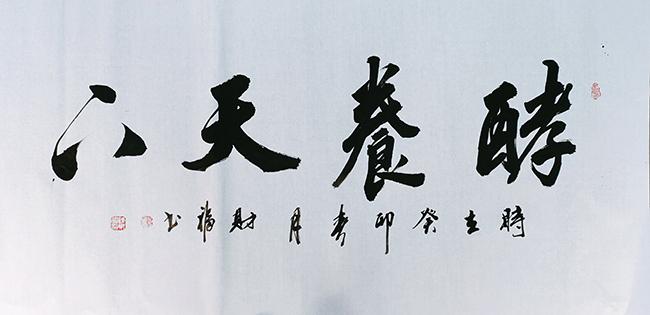 酵養天下
時在癸卯春月財福书